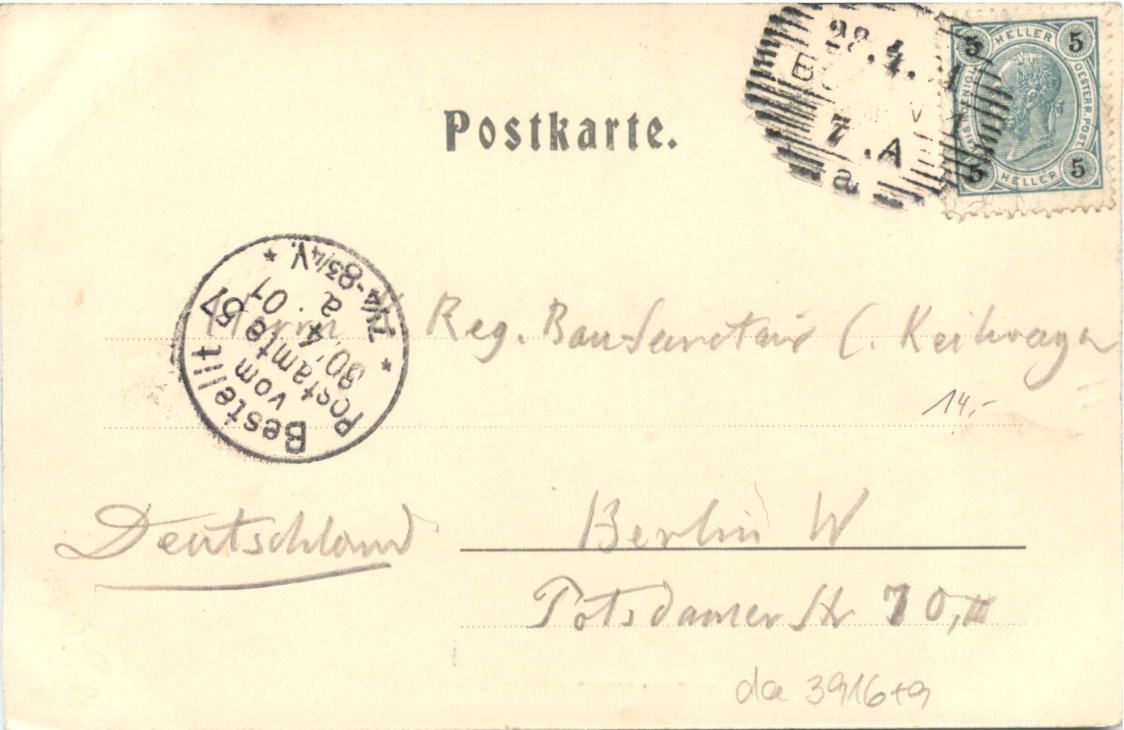 Postkarte.
28.4.
7.A
a
5 HELLER 5
OESTERR. POST
5 HELLER 5
Bestellt
vom
Postamte 57
30/4 01
a.
7¼-8¾V.
Herrn Reg. Bau-Secretair C.
14,-
Deutschland
Berlin W
Potsdamer Str 70, II
da 3916+9